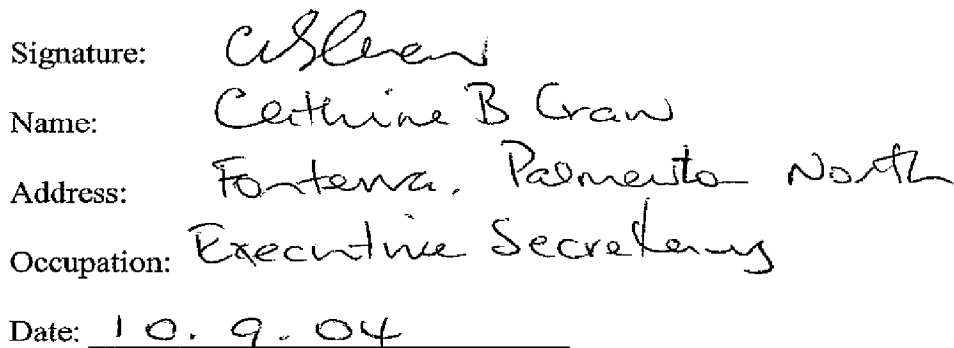 Signature:
Name: Cathrine B Craw
Address: Fonterra, Palmerston North
Occupation: Executive Secretary
Date: 10.9.04